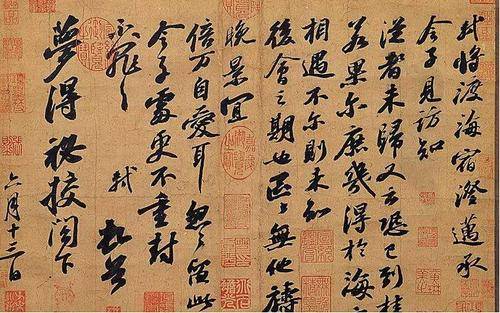 軾將渡海宿澄邁承
令子見訪知
從者未歸又云恐已到桂
若果爾庶幾得於海
相遇不爾則未知
後會之期也區々無他禱
晚景宜
倍万自愛耳忽々留此
令子處更不重封
不罪々
軾 頓首
夢得秘校閣下
六月十三日